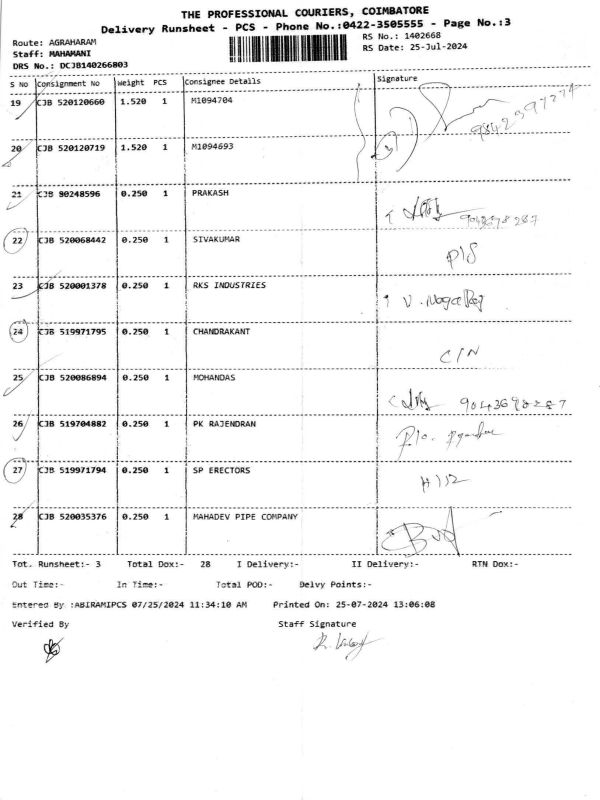 THE PROFESSIONAL COURIERS, COIMBATORE
Delivery Runsheet - PCS - Phone No.:0422-3505555 - Page No.:3
Route: AGRAHARAM
RS No.: 1402668
Staff: MAHAMANI
RS Date: 25-Jul-2024
DRS No.: DCJB140266803
S No Consignment No Weight PCS Consignee Details Signature
19 CJB 520120660 1.520 1 M1094704
20 CJB 520120719 1.520 1 M1094693
21 CJB 90248596 0.250 1 PRAKASH
22 CJB 520068442 0.250 1 SIVAKUMAR
23 CJB 520001378 0.250 1 RKS INDUSTRIES
24 CJB 519971795 0.250 1 CHANDRAKANT
C/N
25 CJB 520086894 0.250 1 MOHANDAS
26 CJB 519704882 0.250 1 PK RAJENDRAN
27 CJB 519971794 0.250 1 SP ERECTORS
28 CJB 520035376 0.250 1 MAHADEV PIPE COMPANY
Tot. Runsheet:- 3 Total Dox:- 28 I Delivery:- II Delivery:- RTN Dox:-
Out Time:- In Time:- Total POD:- Delvy Points:-
Entered By :ABIRAMIPCS 07/25/2024 11:34:10 AM Printed On: 25-07-2024 13:06:08
Verified By Staff Signature